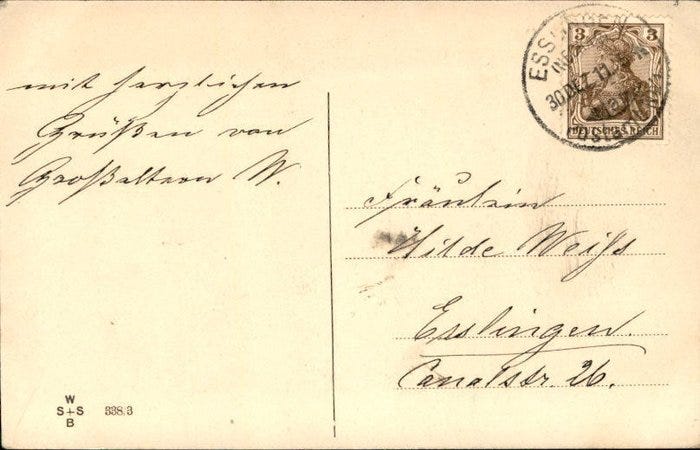 mit herzlichen
Grüßen von
Großeltern W.
ESSLINGEN
30 DEZ 11
3 3
DEUTSCHES REICH
Fräulein
Hilde Weiß
Esslingen.
Canalstr. 26.
W
S+S
B
338.3